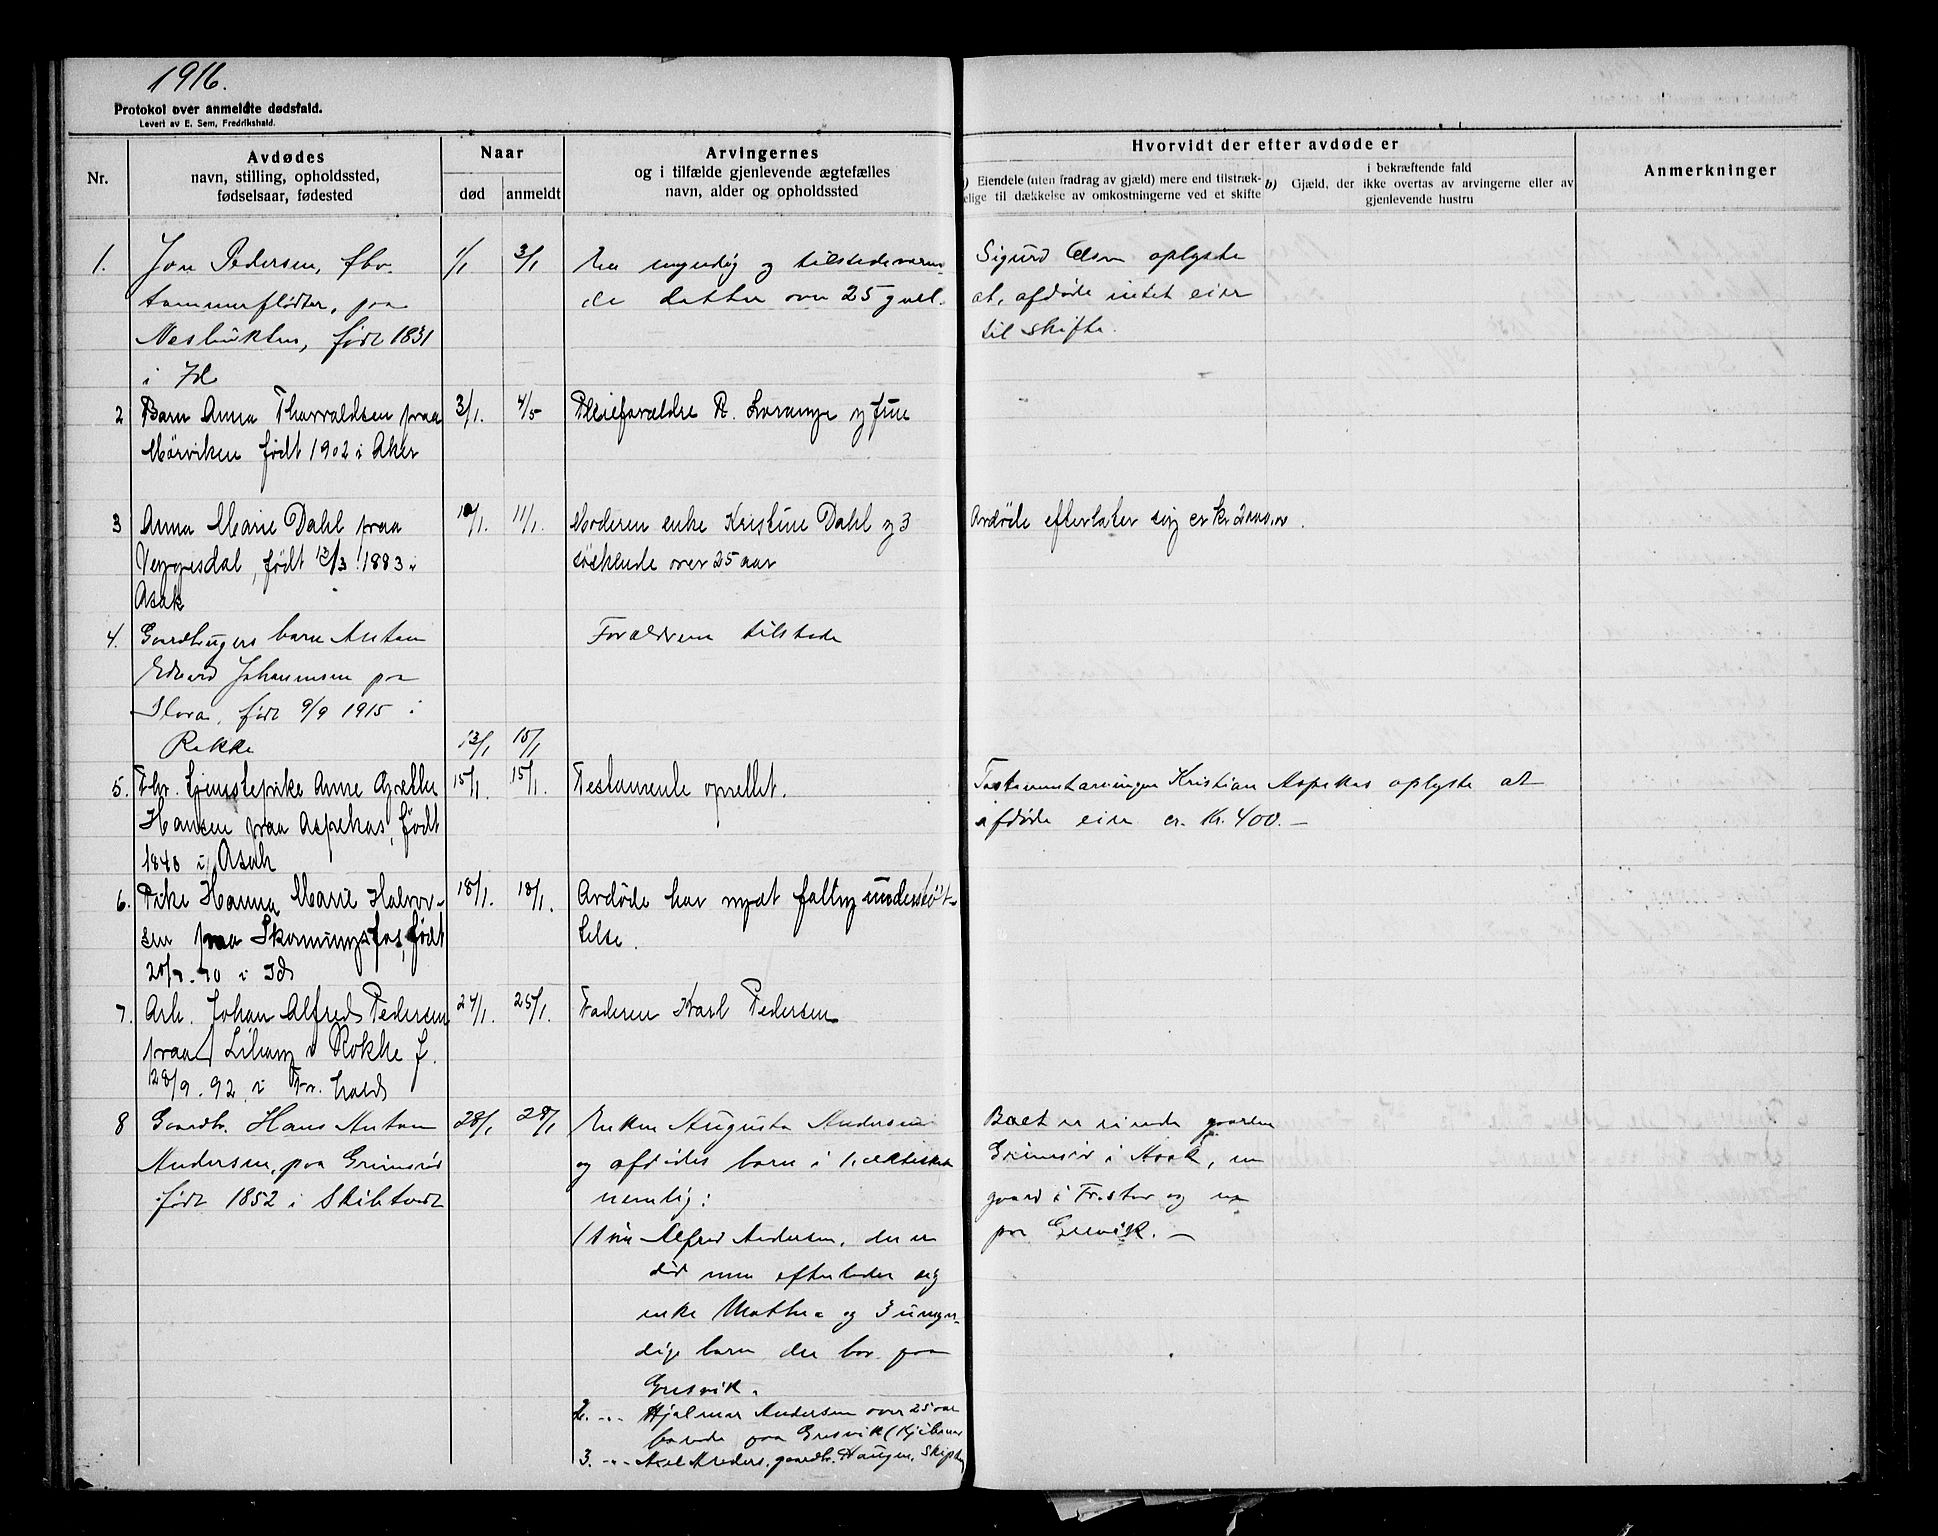 1916.
Protokol over anmeldte dødsfald.
Levert av E. Sem, Fredrikshald.
Nr.
Avdødes
navn, stilling, opholdssted,
fødselsaar, fødested
Naar
død
anmeldt
Arvingernes
og i tilfælde gjenlevende ægtefælles
navn, alder og opholdssted
Hvorvidt der efter avdøde er
Eiendele (uten fradrag av gjæld) mere end tilstræk-
elige til dækkelse av omkostningerne ved et skifte
i bekræftende fald
b) Gjæld, der ikke overtas av arvingerne eller av
gjenlevende hustru
Anmerkninger
1. Jon Pedersen, fhv. 1/1 3/1 En myndig og tilstedeværen- Sigurd Olsen oplyste
tømmerflødter, paa de datter over 25 aar at, afdøde intet eier
Nesbukten, født 1831 til skifte.
i Id
2 Barn Anna Thorvaldsen paa 3/1. 4/5 Pleieforældre R. og frue
Mørviken født 1902 i Aker
3 Anna Marie Dahl paa 10/1. 11/1. Moderen enke Kristine Dahl og 3 Avdøde efterlater sig ca kr 2000,00.
Veggisdal, født 12/3 1883 i søskende over 25 aar
Asak
4. Gaardbrugers barn Anton Forældrene tilstede
Edvard Johannesen paa
Flora, født 9/9 1915 i
Rokke 13/1 15/1
5. Fhv. tjenestepike Anne Grethe 15/1. 15/1. Testamente oprettet. Testamentarvingen Kristian Aspekas oplyste at
Hansen paa Aspekas, født afdøde eier ca. Kr. 400.-
1840 i Asak
6. Pike Hanna Marie Halvor- 18/1. 18/1. Avdøde har nydt fattigunderstøt-
sen paa Skonningsfos, født telse.
20/9.90 i Id
7. Arb. Johan Alfred Pedersen 24/1. 25/1. Faderen Karl Pedersen
paa Liholung i Rokke f.
28/9.92 i Fr.hald
8 Gaardbr. Hans Anton 28/1 28/1 Enken Augusta Andersen Boet er eiende gaarden
Andersen, paa Grimsrød og afdødes barn i 1. ekteskab Grimsrød i Asak, en
født 1852 i Skibtvedt nemlig: gaard i Fr.stad og en
1 Alfred Andersen, der er paa Gresvik. -
død men efterlader sig
enke Mathea og 3 umyn-
dige barn, der bor paa
Gresvik.
2. -"- Hjalmar Andersen over 25 aar
boende paa Gresvik
3. -"- Axel Anders. gaardbr. Haugen, Skiptv